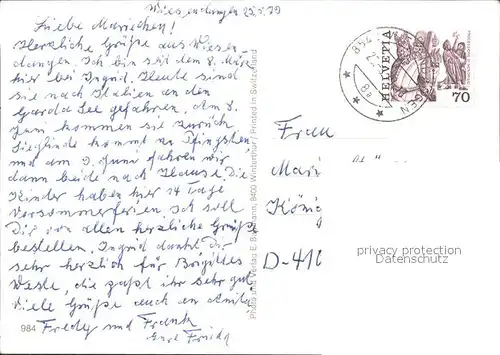 Wiesendangen 25.5.79
Liebe Mariechen!
Herzliche Grüße aus Wiesen-
dangen. Ich bin seit dem 8. Mai
hier bei Ingrid. Heute sind
sie nach Italien an den
Garda See gefahren. Am 8.
Juni kommen sie zurück
Sieglinde kommt zu Pfingsten
und am 9. Juni fahren wir
dann beide nach Hause. Die
Kinder haben hier 14 Tage
Vorsommerferien. Ich soll
Dir von allen herzliche Grüße
bestellen. Ingrid dankt Dir
sehr herzlich für Brigittes
Weste, die paßt ihr sehr gut
Viele Grüße auch an
Fredy und Frank
Eure Frieda
984
Photo und Verlag E. Baumann, 8400 Winterthur / Printed in Switzerland
HELVETIA
70
Frau
Mari
König
D-41
privacy protection
Datenschutz